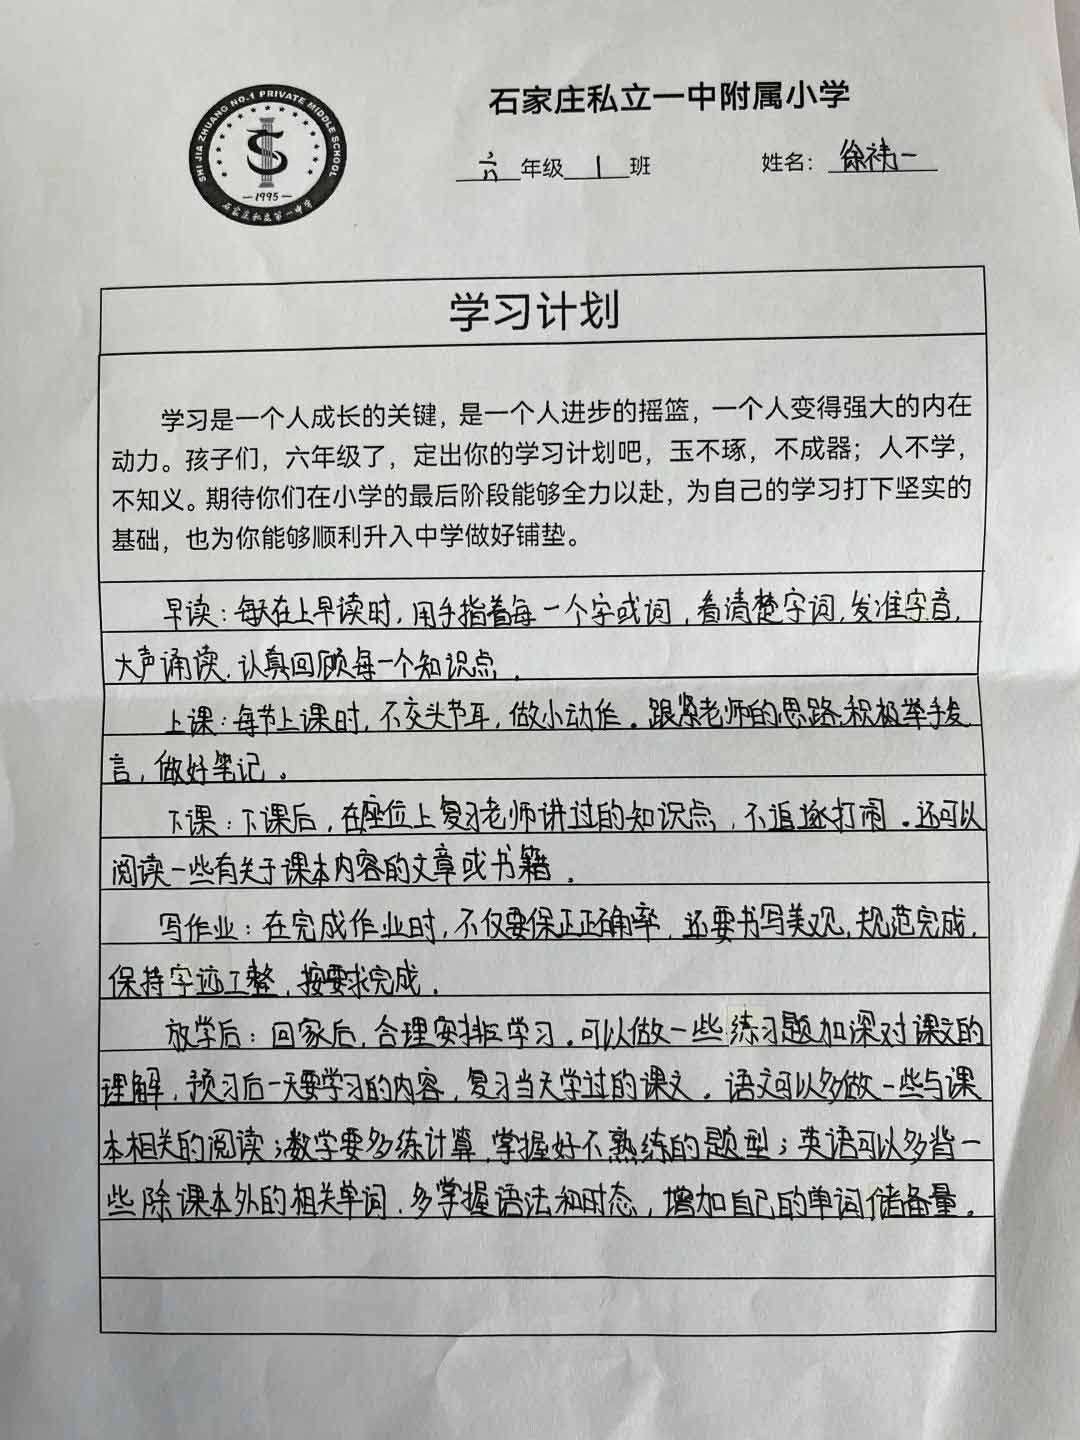 石家庄私立一中附属小学
SHI JIA ZHUANG NO.1 PRIVATE MIDDLE SCHOOL
1995
石家庄私立第一中学
六年级 1 班 姓名：徐祎一
学习计划
学习是一个人成长的关键，是一个人进步的摇篮，一个人变得强大的内在
动力。孩子们，六年级了，定出你的学习计划吧，玉不琢，不成器；人不学，
不知义。期待你们在小学的最后阶段能够全力以赴，为自己的学习打下坚实的
基础，也为你能够顺利升入中学做好铺垫。
早读：每天在上早读时，用手指着每一个字或词，看清楚字词，发准字音，
大声诵读，认真回顾每一个知识点。
上课：每节上课时，不交头节耳，做小动作。跟紧老师的思路，积极举手发
言，做好笔记。
下课：下课后，在座位上复习老师讲过的知识点，不追逐打闹。还可以
阅读一些有关于课本内容的文章或书籍。
写作业：在完成作业时，不仅要保正正确率，还要书写美观，规范完成，
保持字迹工整，按要求完成。
放学后：回家后，合理安排学习。可以做一些练习题加深对课文的
理解，预习后一天要学习的内容，复习当天学过的课文。语文可以多做一些与课
本相关的阅读；数学要多练计算，掌握好不熟练的题型；英语可以多背一
些除课本外的相关单词，多掌握语法和时态，增加自己的单词储备量。